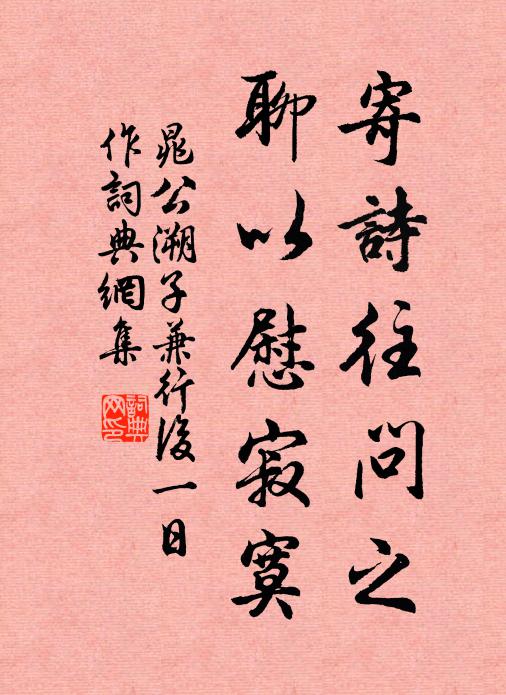 寄詩往問之
聊以慰寂寞
晁公溯子兼行後一日
作詞典網集
詞典网印